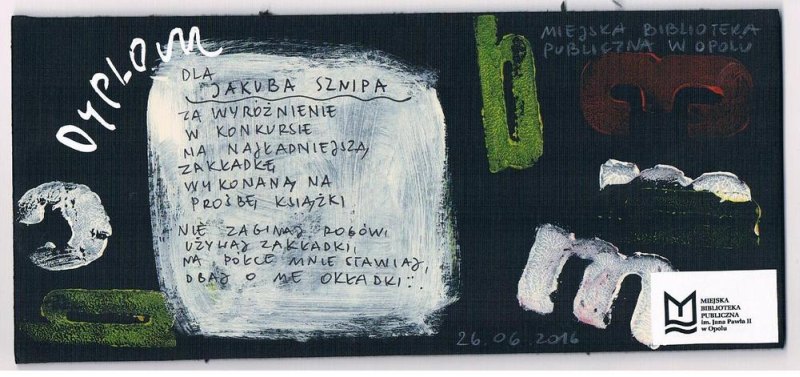 DYPLOM
DLA
JAKUBA SZNIPA
ZA WYRÓŻNIENIE
W KONKURSIE
NA NAJŁADNIEJSZĄ
ZAKŁADKĘ
WYKONANĄ NA
PROŚBĘ KSIĄŻKI
NIE ZAGINAJ ROGÓW,
UŻYWAJ ZAKŁADKI,
NA PÓŁCE MNIE STAWIAJ,
DBAJ O ME OKŁADKI...
MIEJSKA BIBLIOTEKA
PUBLICZNA W OPOLU
26.06.2016
MIEJSKA
BIBLIOTEKA
PUBLICZNA
im. Jana Pawła II
w Opolu